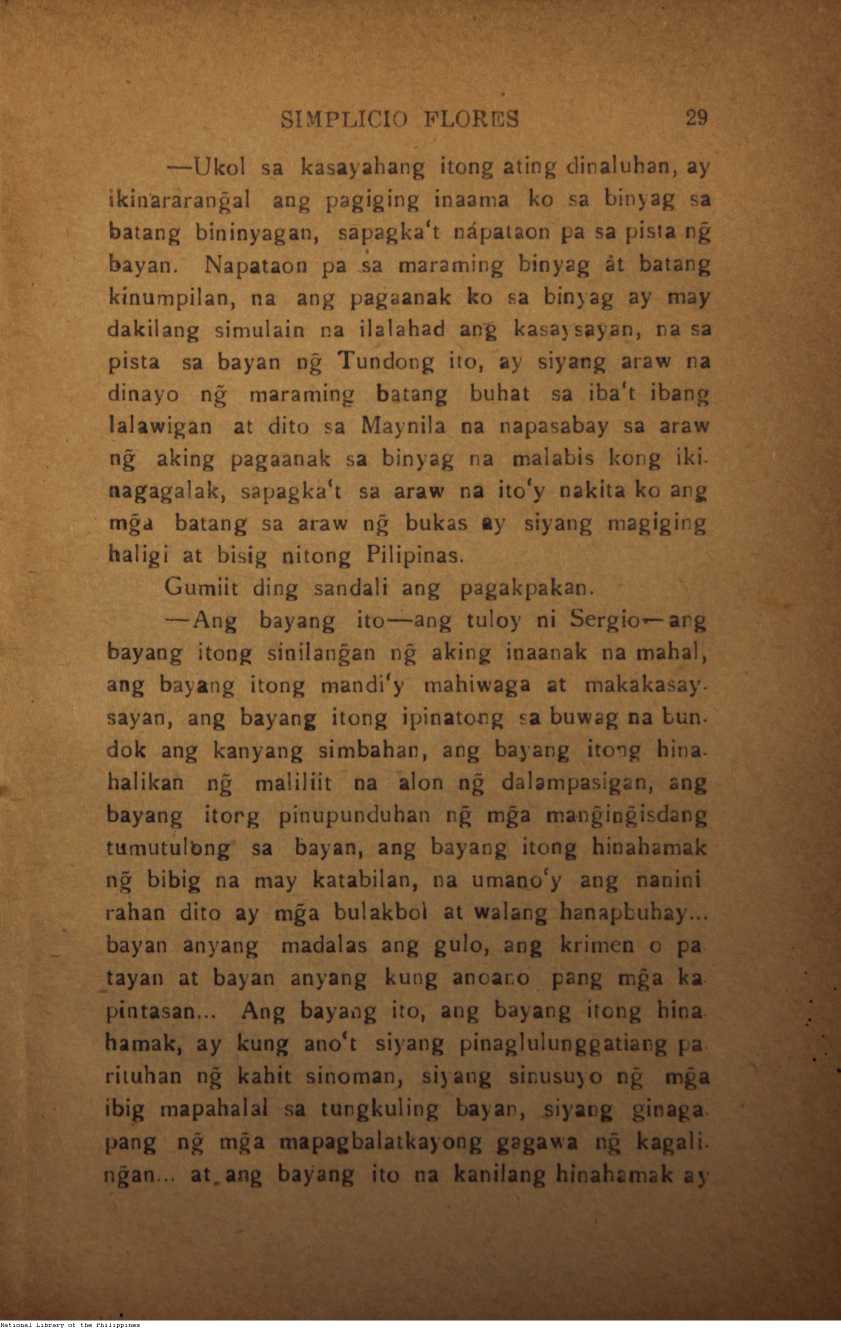 SIMPLICIO FLORES 29
—Ukol sa kasayahang itong ating dinaluhan, ay
ikinararang̃al ang pagiging inaama ko sa binyag sa
batang bininyagan, sapagka‘t nápataon pa sa pista ng̃
bayan. Napataon pa sa maraming binyag át batang
kinumpilan, na ang pagaanak ko sa binyag ay may
dakilang simulain na ilalahad ang kasaysayan, na sa
pista sa bayan ng̃ Tundong ito, ay siyang araw na
dinayo ng̃ maraming batang buhat sa iba‘t ibang
lalawigan at dito sa Maynila na napasabay sa araw
ng̃ aking pagaanak sa binyag na malabis kong iki-
nagagalak, sapagka‘t sa araw na ito‘y nakita ko ang
mg̃a batang sa araw ng̃ bukas ay siyang magiging
haligi at bisig nitong Pilipinas.
Gumiit ding sandali ang pagakpakan.
—Ang bayang ito—ang tuloy ni Sergio—ang
bayang itong sinilang̃an ng̃ aking inaanak na mahal,
ang bayang itong mandi‘y mahiwaga at makakasay-
sayan, ang bayang itong ipinatong sa buwag na bun-
dok ang kanyang simbahan, ang bayang itong hina-
halikan ng̃ maliliit na alon ng̃ dalampasigan, ang
bayang itong pinupunduhan ng̃ mg̃a mang̃ing̃isdang
tumutulong sa bayan, ang bayang itong hinahamak
ng̃ bibig na may katabilan, na umano‘y ang nanini
rahan dito ay mg̃a bulakbol at walang hanapbuhay...
bayan anyang madalas ang gulo, ang krimen o pa
tayan at bayan anyang kung anoano pang mg̃a ka-
pintasan... Ang bayang ito, ang bayang itong hina
hamak, ay kung ano‘t siyang pinaglulunggatiang pa
rituhan ng̃ kahit sinoman, siyang sinusuyo ng̃ mg̃a
ibig mapahalal sa tungkuling bayan, siyang ginaga-
pang ng̃ mg̃a mapagbalatkayong gagawa ng̃ kagali-
ng̃an... at ang bayang ito na kanilang hinahamak ay
National Library of the Philippines